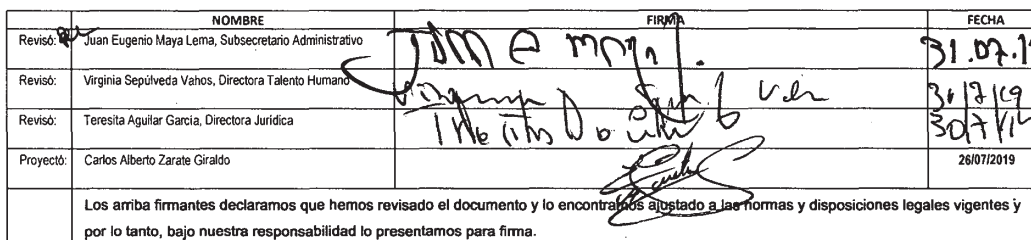 NOMBRE FIRMA FECHA
Revisó: Juan Eugenio Maya Lema, Subsecretario Administrativo 31.07.19
Revisó: Virginia Sepúlveda Vahos, Directora Talento Humano 31/7/19
Revisó: Teresita Aguilar Garcia, Directora Jurídica 30/7/19
Proyectó: Carlos Alberto Zarate Giraldo 26/07/2019
Los arriba firmantes declaramos que hemos revisado el documento y lo encontramos ajustado a las normas y disposiciones legales vigentes y
por lo tanto, bajo nuestra responsabilidad lo presentamos para firma.